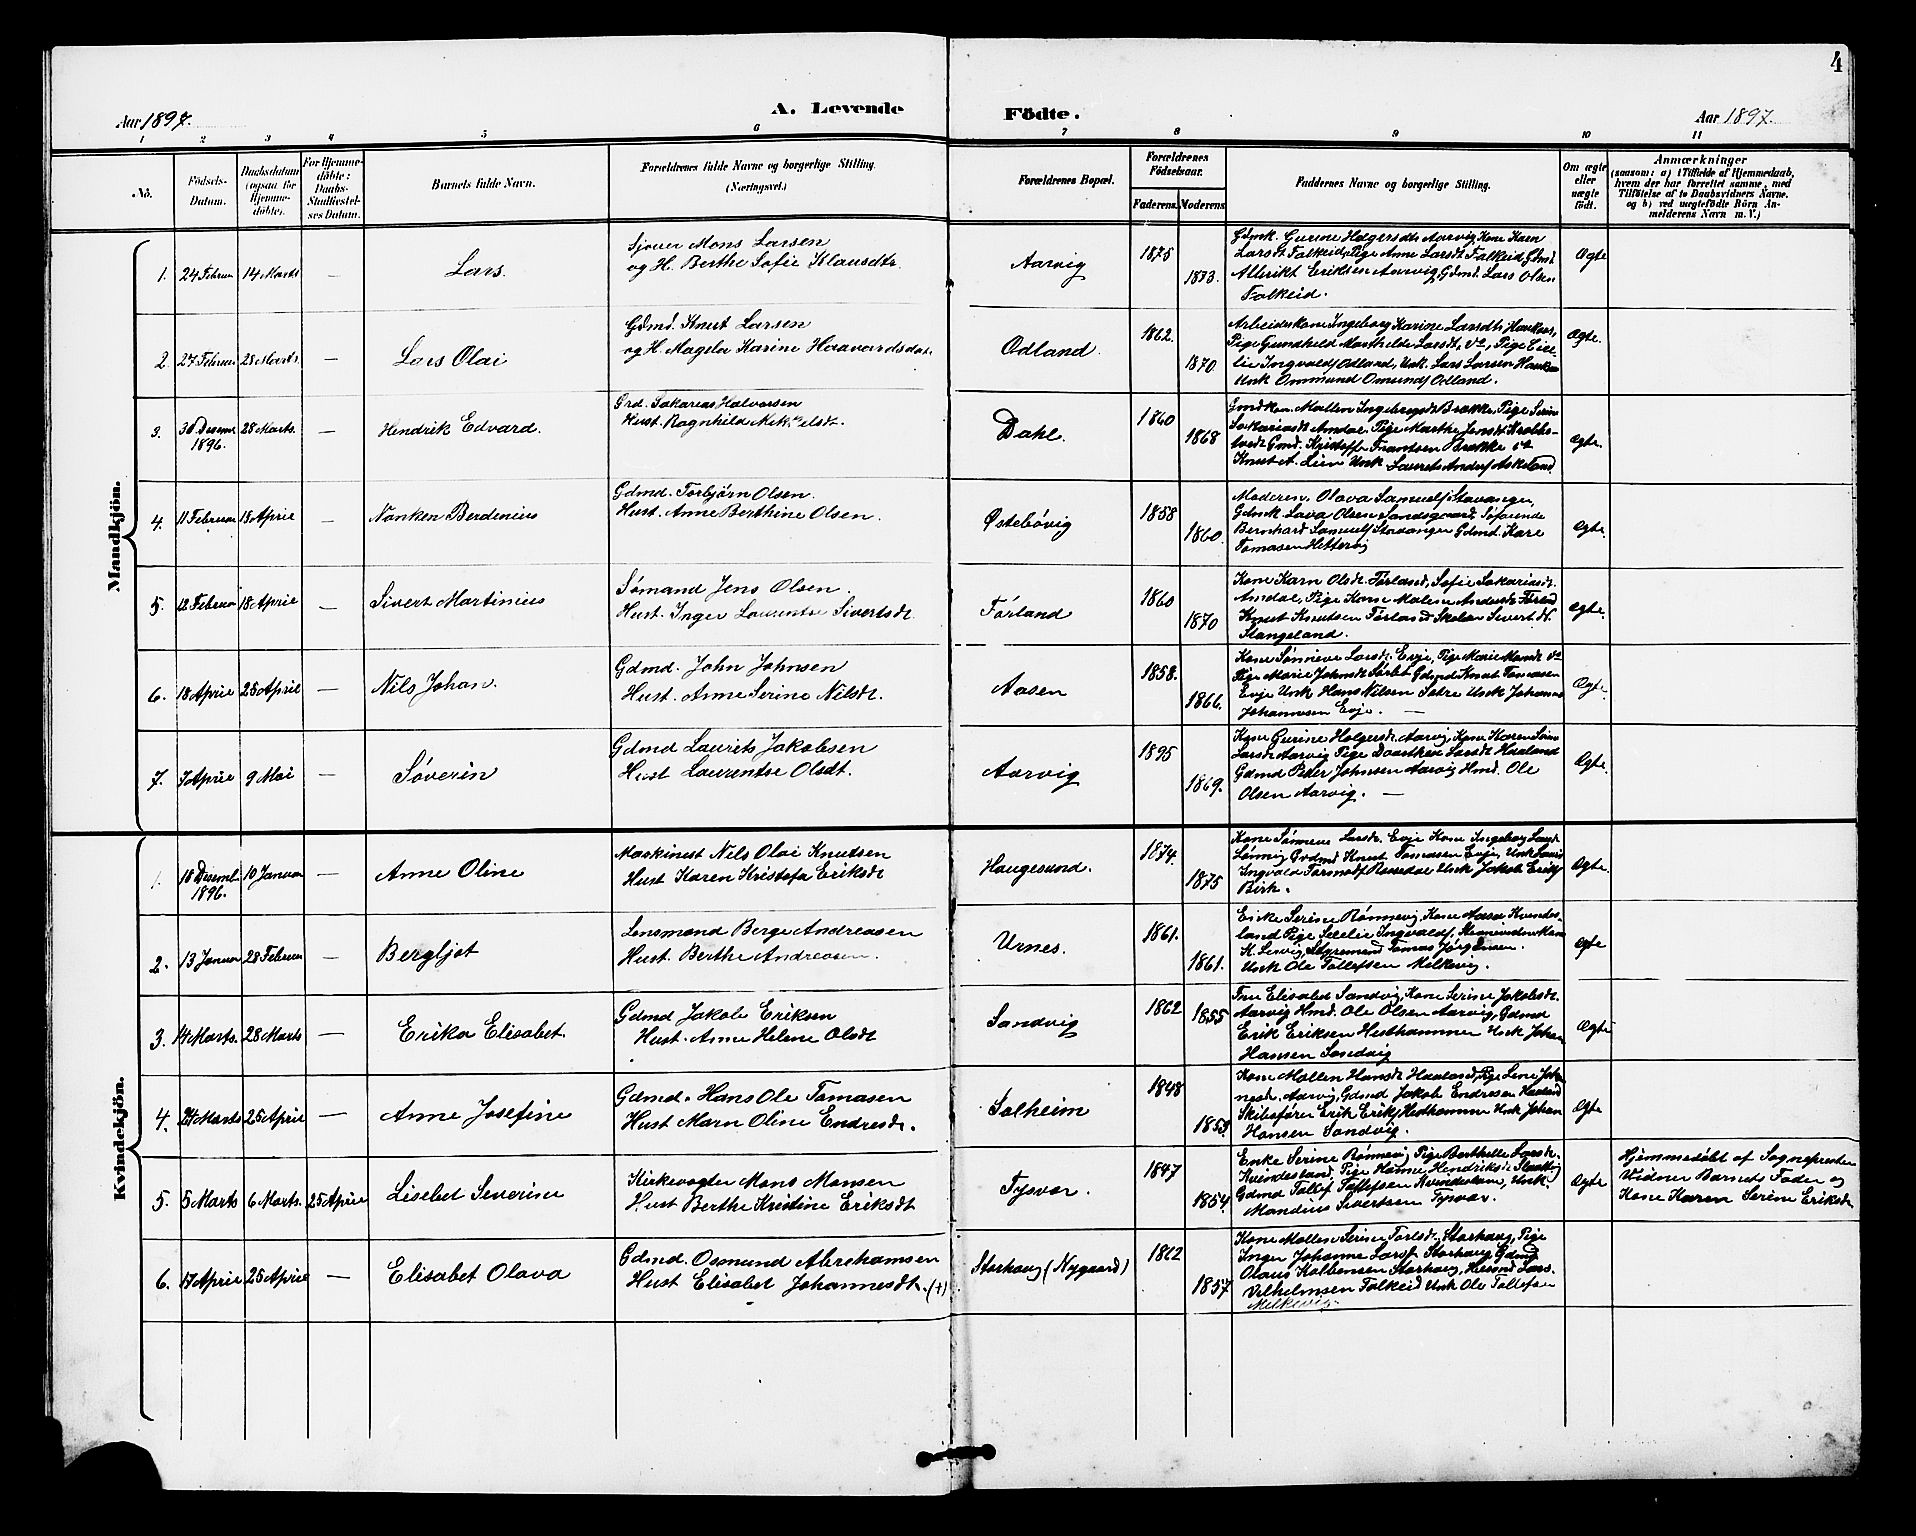 4
Aar 1897.
A. Levende
Födte.
Aar 1897.
1 2 3 4 5 6 7 8 9 10 11
No.
Födsels-
Datum.
Daabsdatum
(ogsaa for
Hjemme-
döbte).
For Hjemme-
döbte:
Daabs-
Stadfæstel-
ses Datum.
Barnets fulde Navn.
Forældrenes fulde Navne og borgerlige Stilling.
(Næringsvei.)
Forældrenes Bopæl.
Forældrenes
Födselsaar.
Faderens.
Moderens.
Faddernes Navne og borgerlige Stilling.
Om ægte
eller
uægte
födt.
Anmærkninger
(saasom: a) i Tilfælde af Hjemmedaab,
hvem der har forrettet samme, med
Tilföielse af to Daabsvidners Navne.
og b) ved uægtefödte Börn An-
melderens Navn m. V.)
Mandkjön.
1. 24 Februar 14 Marts — Lars.
Sjøver Mons Larsen
og H. Berthe Sofie Klausdtr
Aarvig 1875 1873.
Gdmk. Gurine Holgersdt Aarvig, Kone Karn
Larsdt Falkeid, Pige Anne Larsdt Falkeid, Gdmd
Albrikt Eriksen Aarvig, Gdmd. Lars Olsen
Falkeid.
Ægte
2. 27 Februar 28 Marts — Lars Olai
Gdmd. Knut Larsen
og H. Magela Karine Haavardsdat.
Odland. 1862. 1870.
Arbeidskone Ingeborg Karine Larsdt
Pige Gundhild Marthilde Larsdt, Pige
Ingvaldsf Odland, Unk. Lars Larsen
Unk Ommund Omundsf Odland.
Ægte.
3. 30 Decemb. 1896. 28 Marts. — Hendrik Edvard.
Grd. Sakarias Halvorsen
Hust. Ragnhild Mikkelsdt.
Dahl. 1860 1868
Gmdkon. Mallen Ingebregtdt Brække, Pige Serin
Sakariasdt Amdal, Pige Marthe Jensdt
Gmd. Kristoffer Frantsen Brække
Knut A. Lien Unk Laurits Andersf Askeland
Ægte.
4. 11 Februar 18 Aprie — Nanken Berdinius
Gdmd. Torbjørn Olsen.
Hust. Anne Berthine Olsen.
Østebövig 1858 1860.
Moderen, Olava Samuelsf Stavanger,
Gdmk Lava Olsen Sandsgaard,
Bernhard Samuelsf Stavanger Gdmd. Kare
Tomasen Hettervig
Ægte.
5. 12 Februar 18 Aprie — Sivert Martinius
Sømand Jens Olsen.
Hust. Inger Laurentse Sivertsdt.
Førland 1860 1870
Kone Karn Olsdt. Førland, Sofie Sakariasdt.
Amdal, Pige Kone Malene Andersdt Førland
Knut Knutsen Førland Skolen Sivert N.
Stangeland.
Ægte.
6. 18 Aprie 25 Aprie — Nils Johan.
Gdmd. John Johnsen
Hust. Anne Serine Nilsdt.
Aasen 1858. 1866.
Kone Sønneve Larsdt. Evje, Pige Marie
Pige Marie Johnsdt Sørbø Gdmd Knut Tomasen
Evje Unk Hans Nilsen Sætre Unk Johannes
Johannesen Evje. —
Ægte
7. 7 Aprie 9 Mai — Søverin
Gdmd Laurits Jakobsen
Hust Laurentse Olsdt.
Aarvig 1895 1869.
Kone Gurine Holgersdt. Aarvig, Kone Karen
Larsdt Aarvig Pige Doorthea Larsdt Haaland
Gdmd Peder Johnsen Aarvig Hmd. Ole
Olsen Aarvig. —
Ægte.
Kvindekjön.
1. 18 Decmb. 1896. 10 Januar — Anne Oline
Maskinist Nils Olai Knutsen
Hust Karen Kristofa Eriksdt
Haugesund. 1874. 1875
Kone Sønneve Larsdt. Evje Kone Ingeborg
Lønnig Grdmd Knut Tomasen Evje,
Ingvald Tormodsf Rossedal Unk Jakob Eriksf
Birk.
Ægte.
2. 13 Januar 28 Februar — Bergljot
Lensmand Berge Andreasen
Hust. Berthe Andreasen.
Urnes. 1861. 1861.
Enke Serine Rønnevig, Kone Aasa Kvindes-
land Pige Secelie Ingvaldsf,
Styrmand Tomas Jörgensen.
Unk Ole Tollefsen Milkevig.
Ægte
3. 14 Marts. 28 Marts — Erika Elisabet.
Gdmd Jakob Eriksen
Hust. Anne Helene Olsdt
Sandvig 1862 1855
Fru Elisabet Sandvig, Kone Serine Jakobsdt.
Aarvig Hmd. Ole Olsen Aarvig, Gdmd
Erik Eriksen Hesthammer Unk Johan
Hansen Sandvig
Ægte
4. 24 Marts 25 Aprie — Anne Josefine
Gdmd. Hans Ole Tomasen
Hust Marn Oline Endresdt.
Solheim 1848 1853.
Kone Mallen Hansdt Haaland, Pige Lene Joh-
nsdt. Aarvig, Gdmd Jakob Endresen Haaland
Skibsfører Erik Eriksf Hesthammer Unk Johan
Hansen Sandvig.
Ægte
5. 5 Marts 6 Marts. 25 Aprie Lisebet Severine
Kirkevagter Mons Monsen
Hust Berthe Kristine Eriksdt
Tysvær. 1847 1854.
Enke Serine Rønnevig Pige Berthelle Larsdt.
Kvindesland Pige Hanne Hendriksdt Slaattvig
Gdmd Tollef Tollefsen Kvindesland, Unk.
Mandius Sivertsen Tysvær.
Ægte
Hjemmedöbt af Sognepresten
Vidner Barnets Fader og
Kone Karen Serine Eriksdt
6. 17 Aprie 25 Aprie — Elisabet Olava
Gdmd. Osmund Abrahamsen
Hust Elisabet Johannesdt. (†)
Storhaug (Nygaard) 1862 1857
Kone Mallen Serine Torlsdt. Storhaug, Pige
Inger Johanne Larsf. Storhaug, Gdmd
Olaus Kolbensen Storhaug, Husmd Lars.
Vilhelmsen Falkeid Unk Ole Tollefsen
Milkevig.